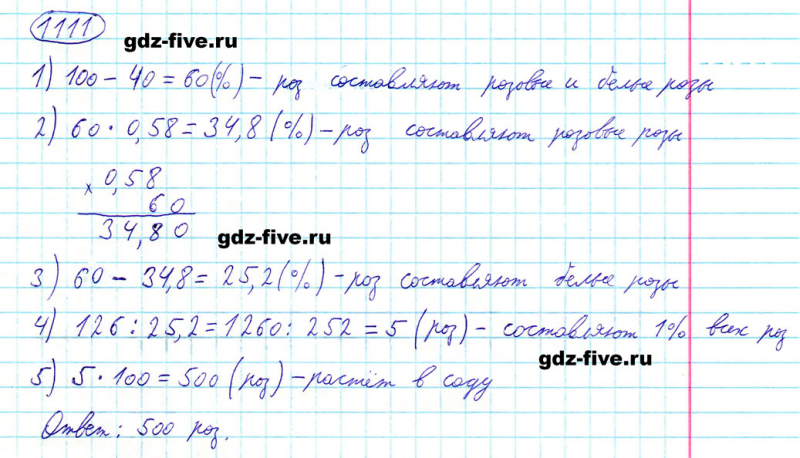 1111
gdz-five.ru
1) 100 - 40 = 60(%) - роз составляют розовые и белые розы
2) 60 · 0,58 = 34,8 (%) - роз составляют розовые розы
× 0,58
60
34,80
gdz-five.ru
3) 60 - 34,8 = 25,2 (%) - роз составляют белые розы
4) 126 : 25,2 = 1260 : 252 = 5 (роз) - составляют 1% всех роз
gdz-five.ru
5) 5 · 100 = 500 (роз) - растёт в саду
Ответ: 500 роз.